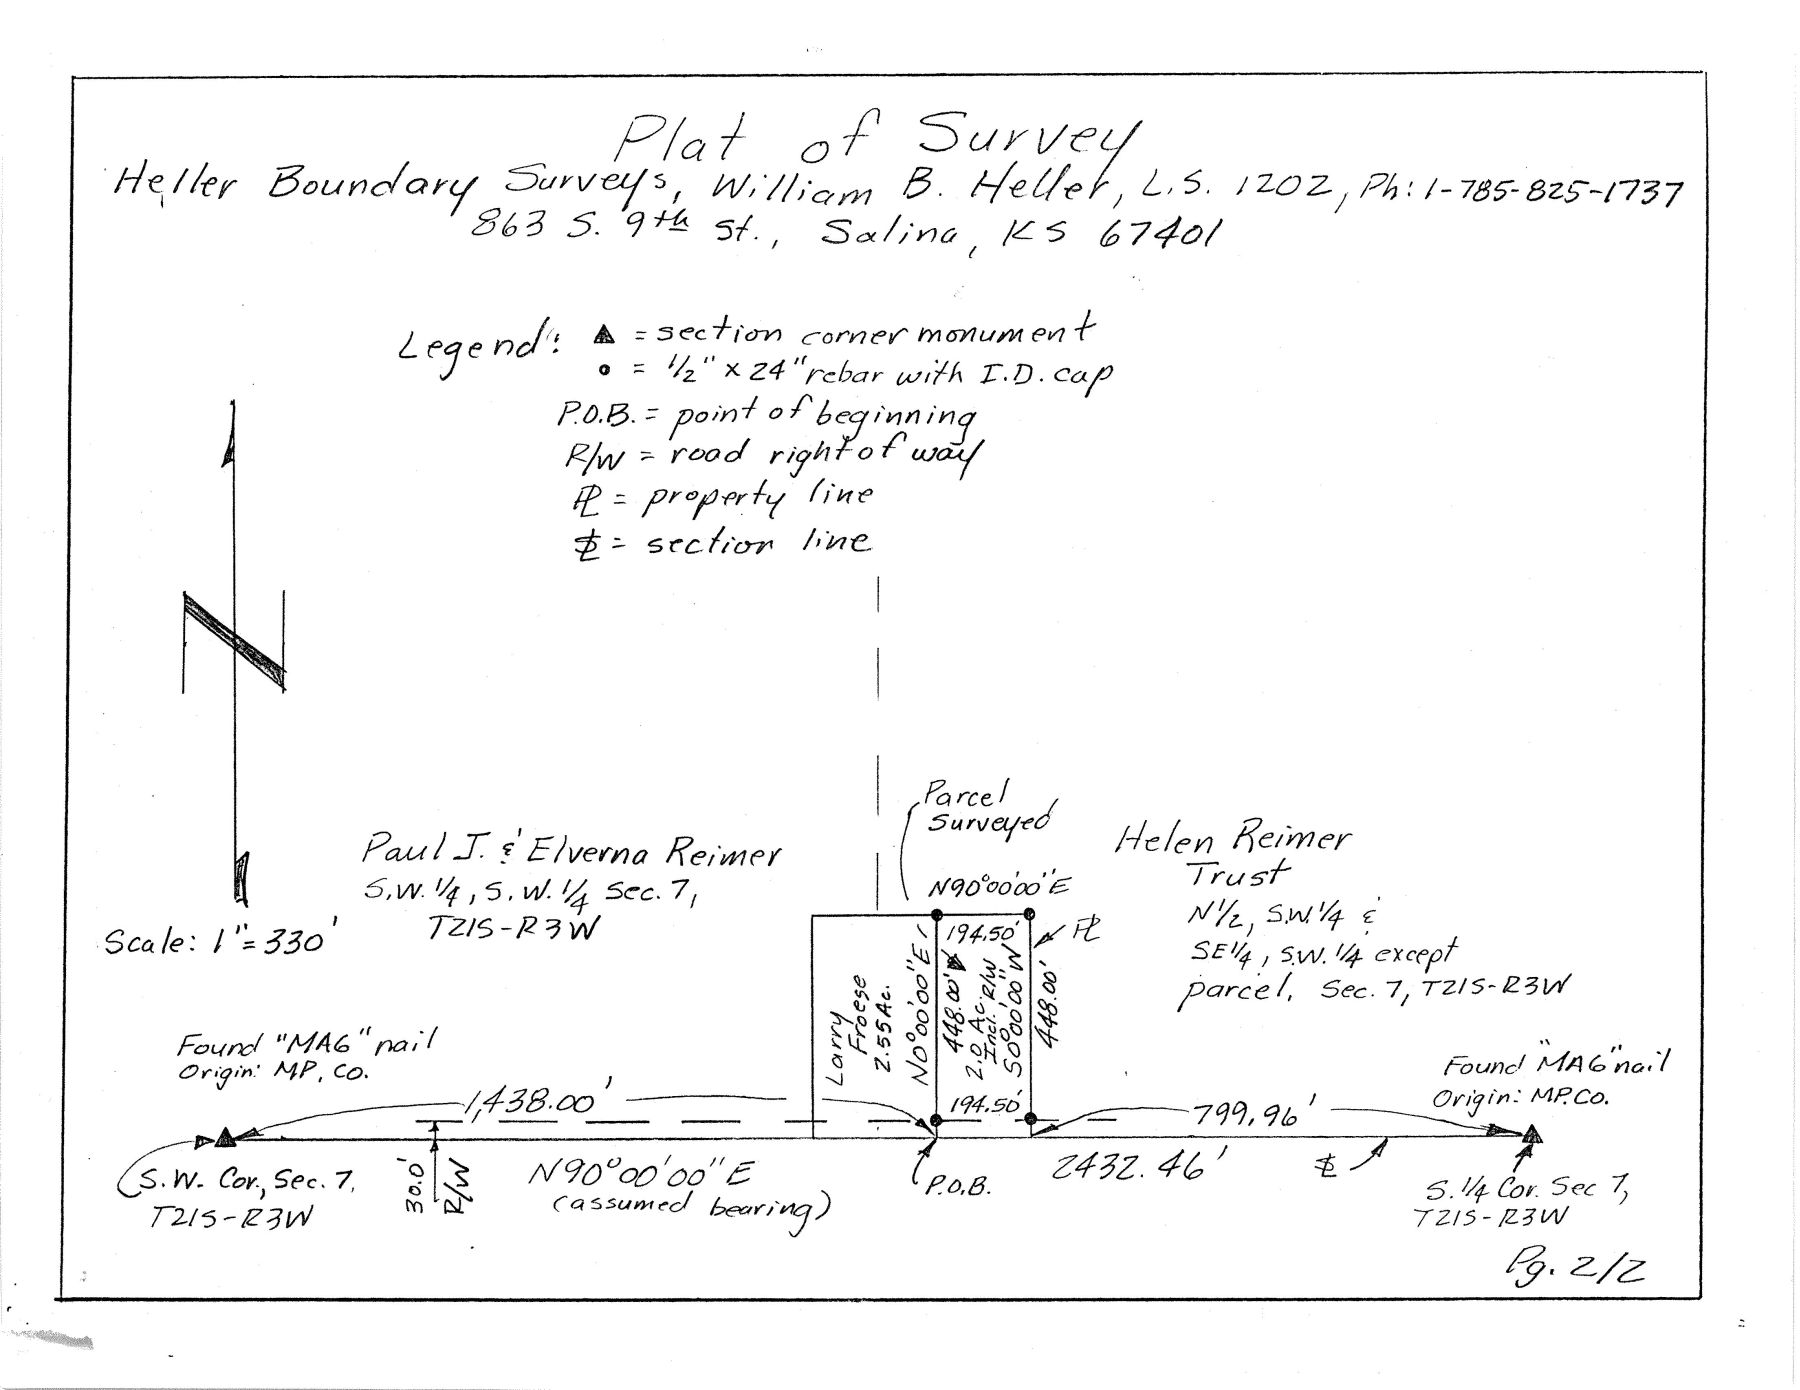 Plat of Survey
Heller Boundary Surveys, William B. Heller, L.S. 1202, Ph: 1-785-825-1737
863 S. 9th St., Salina, KS 67401
Legend: ▲ = section corner monument
• = 1/2" x 24" rebar with I.D. cap
P.O.B. = point of beginning
R/W = road right of way
PL = property line
SL = section line
N
Scale: 1" = 330'
Paul J. & Elverna Reimer
S.W. 1/4, S.W. 1/4 Sec. 7,
T21S-R3W
Parcel
Surveyed
Helen Reimer
Trust
N 1/2, S.W. 1/4 &
SE 1/4, S.W. 1/4 except
parcel, Sec. 7, T21S-R3W
N90°00'00"E
194.50'
PL
Larry
Froese
2.55 Ac.
N0°00'00"E
448.00'
2.0 Ac.
Incl. R/W
S0°00'00"W
448.00'
194.50'
Found "MAG" nail
Origin: MP. Co.
1,438.00'
799.96'
Found "MAG" nail
Origin: MP. Co.
S.W. Cor., Sec. 7,
T21S-R3W
30.0'
R/W
N90°00'00"E
(assumed bearing)
P.O.B.
2432.46'
SL
S. 1/4 Cor. Sec 7,
T21S-R3W
Pg. 2/2